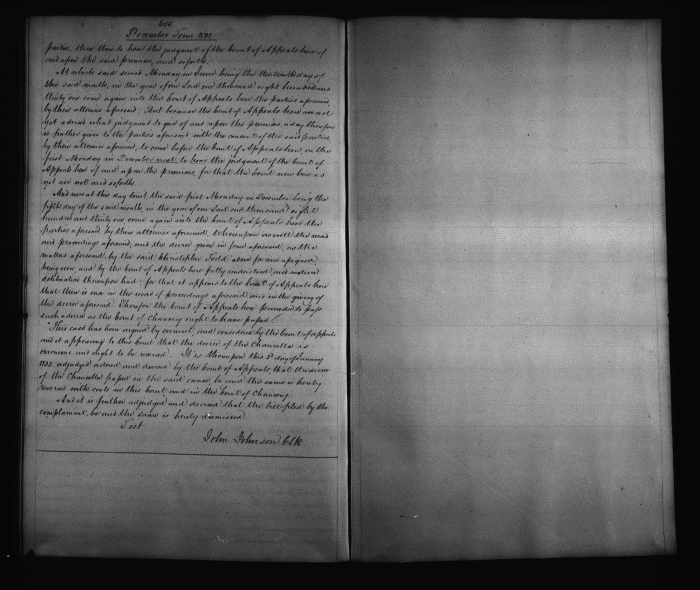 656
December Term 1831
parties, then thou to hear the judgment of the Court of Appeals here of
and upon the said premises, and soforth.
At which said second Monday in June being the thirteenth day of
the said month, in the year of our Lord one thousand eight hundred and
thirty one come again into the Court of Appeals here the parties aforesaid,
by their attornies aforesaid: But because the Court of Appeals here are not
yet advised what judgment to give of and upon the premises, a day therefore
is further given to the parties aforesaid with the consent of the said parties
by their attornies aforesaid, to come before the Court of Appeals here, on the
first Monday in December next, to hear the judgment of the Court of
Appeals here of and upon the premises, for that the Court now here as
yet are not and soforth.
And now at this day to wit the said first Monday in December being the
fifth day of the said month, in the year of our Lord one thousand eight
hundred and thirty one come again into the Court of Appeals here the
parties aforesaid, by their attornies aforesaid. Whereupon as well the record
and proceedings aforesaid, and the decree given in form aforesaid, as the
matters aforesaid by the said Christopher Todd above for error assigned
being seen, and by the Court of Appeals here fully understood, and mature
deliberation thereupon had: for that it appears to the Court of Appeals here
that there is error in the record of proceedings aforesaid and in the giving of
the decree aforesaid. Therefore the Court of Appeals here proceeded to pass
such a decree as the Court of Chancery ought to have passed.
"This case has been argued by counsel, and considered by the Court of Appeals
and it appearing to this Court that the decree of the Chancellor is
erroneous and ought to be reversed. It is thereupon this day of January
1832 adjudged ordered and decreed by the Court of Appeals, that the decree
of the Chancellor passed in the said cause be and the same is hereby
reversed with costs in this Court and in the Court of Chancery
And it is further adjudged and decreed that the bill filed by the
complainant be and the same is hereby dismissed
Test
John Johnson Clk